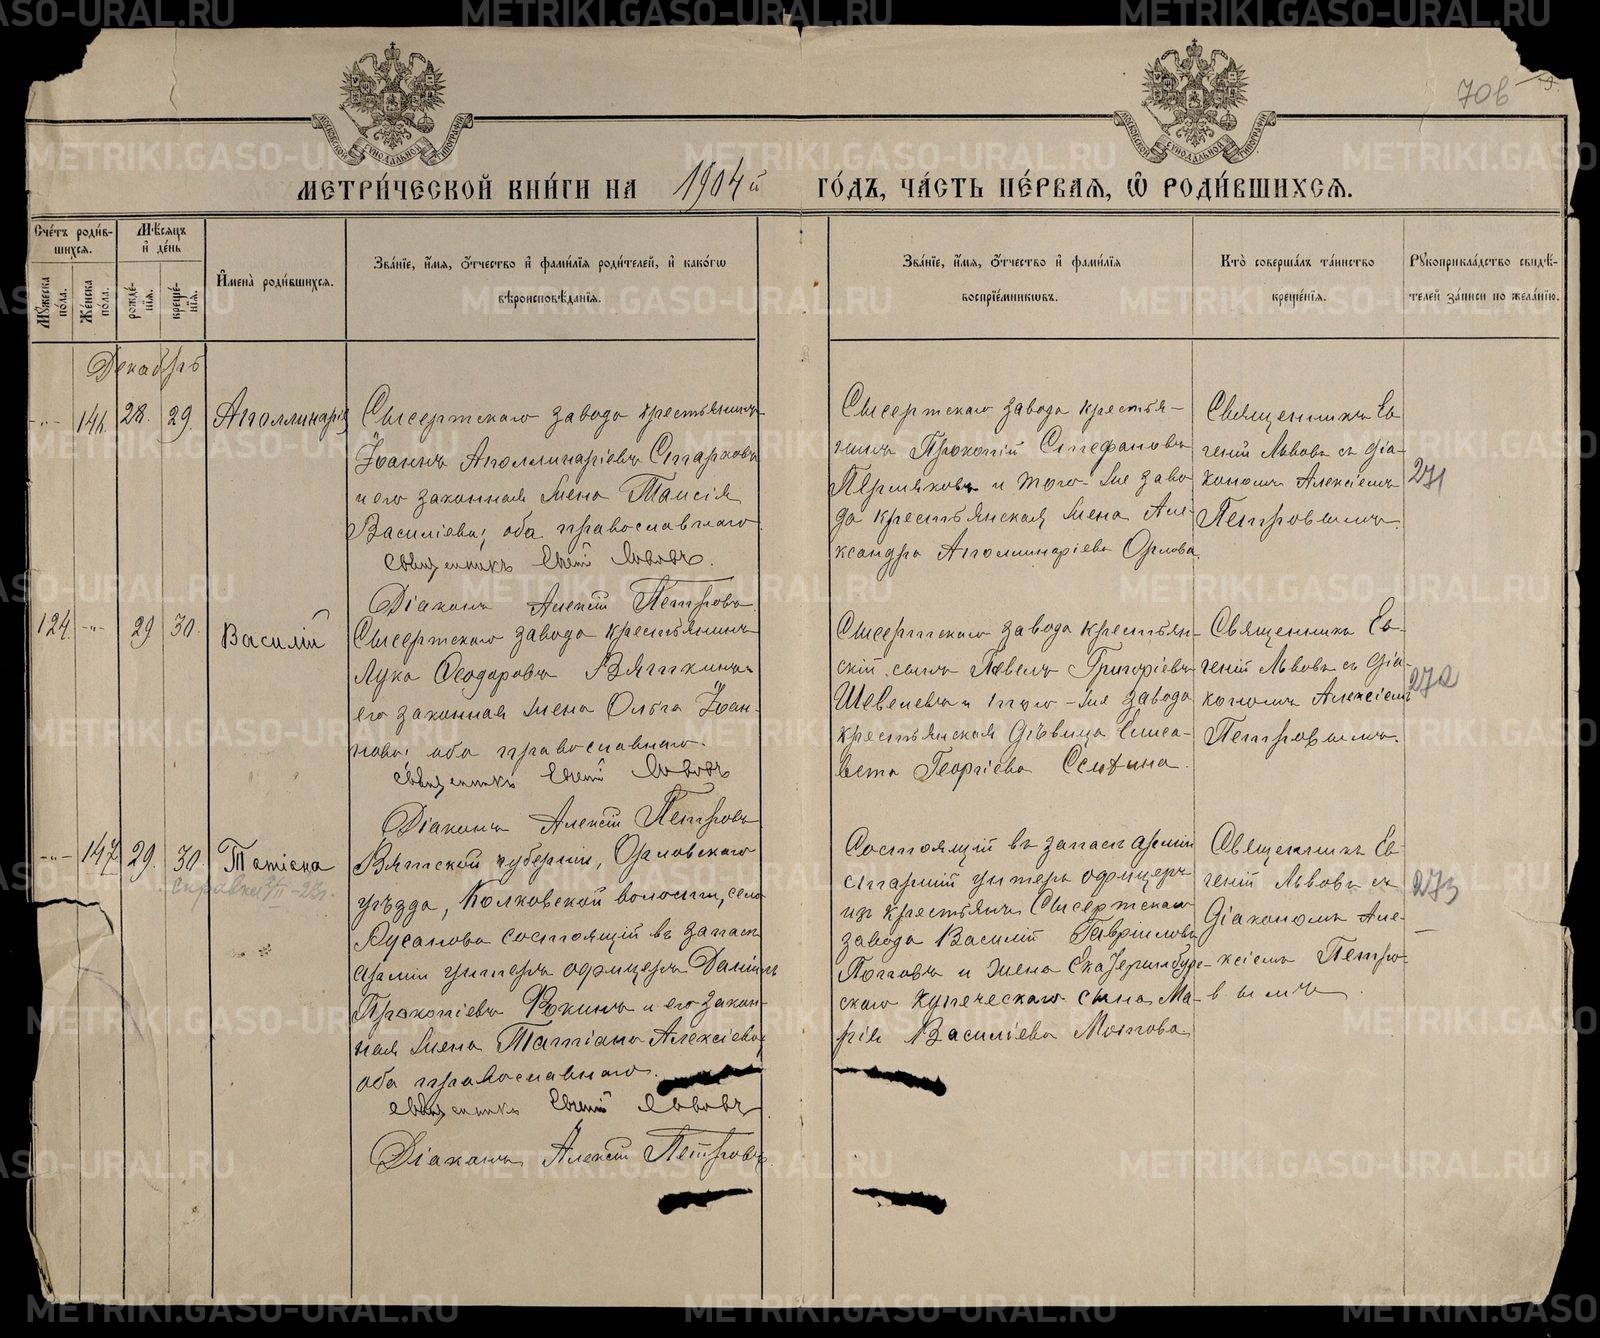 METRIKI.GASO-URAL.RU
706
МЕТРИ́ЧЕСКОЙ КНИ́ГИ НА 1904й ГО́ДЪ, ЧА́СТЬ ПЕ́РВАЯ, Ѡ РОДИ́ВШИХСЯ.
Счетъ роди́вшихся.
Мꙋжеска по́ла.
Же́нска по́ла.
Мѣсяцъ и де́нь
рожде́нїя.
креще́нїя.
Имена̀ роди́вшихся.
Зва́нїе, и́мя, ѻ́тчество и фами́лїя роди́телей, и како́гѡ
вѣроисповѣ́данїя.
Зва́нїе, и́мя, ѻ́тчество и фами́лїя
воспрїе́мникѡвъ.
Кто̀ соверша́лъ та́инство
креще́нїя.
Рꙋкоприкла́дство свидѣ́-
телей за́писи по жела́нїю.
Декабрь
-"- 146. 28. 29. Аполлинарія
Сысертскаго завода крестьянинъ
Іоаннъ Аполлинаріевъ Старковъ
и его законная жена Таисія
Василіева; оба православнаго.
Священникъ Евгеній Львовъ.
Діаконъ Алексій Петровъ
Сысертскаго завода крестья-
нинъ Прокопій Стефановъ
Пермяковъ и того-же заво
да крестьянская жена Але-
ксандра Аполлинаріева Орлова.
Священникъ Ев
геній Львовъ съ діа-
кономъ Алексіемъ
Петровымъ.
271
124. -"- 29 30. Василій
Сысертскаго завода крестьянинъ
Лука Ѳеодоровъ Вяткинъ и
его законная жена Ольга Іоан-
нова; оба православнаго.
Священникъ Евгеній Львовъ
Діаконъ Алексій Петровъ
Сысертскаго завода крестьян-
скій сынъ Павелъ Григоріевъ
Шевелевъ и того-же завода
крестьянская дѣвица Елиса-
вета Георгіева
Священникъ Ев-
геній Львовъ съ діа-
кономъ Алексіемъ
Петровымъ.
272
-"- 147. 29. 30. Татіана
справка
Вятской губерніи, Орловскаго
уѣзда, Колковской волости, села
Русанова состоящій въ запасѣ
арміи унтеръ офицеръ Даніилъ
Прокопіевъ Ѳокинъ и его закон-
ная жена Татіана Алексіева;
оба православнаго.
Священникъ Евгеній Львовъ
Діаконъ Алексій Петровъ.
Состоящій въ запасѣ арміи
старшій унтеръ офицеръ
изъ крестьянъ Сысертскаго
завода Василій Гавриловъ
Поповъ и жена Екатеринбург-
скаго купеческаго сына Ма-
рія Василіева
Священникъ Ев-
геній Львовъ съ
Діакономъ Але-
ксіемъ Петро-
вымъ.
273